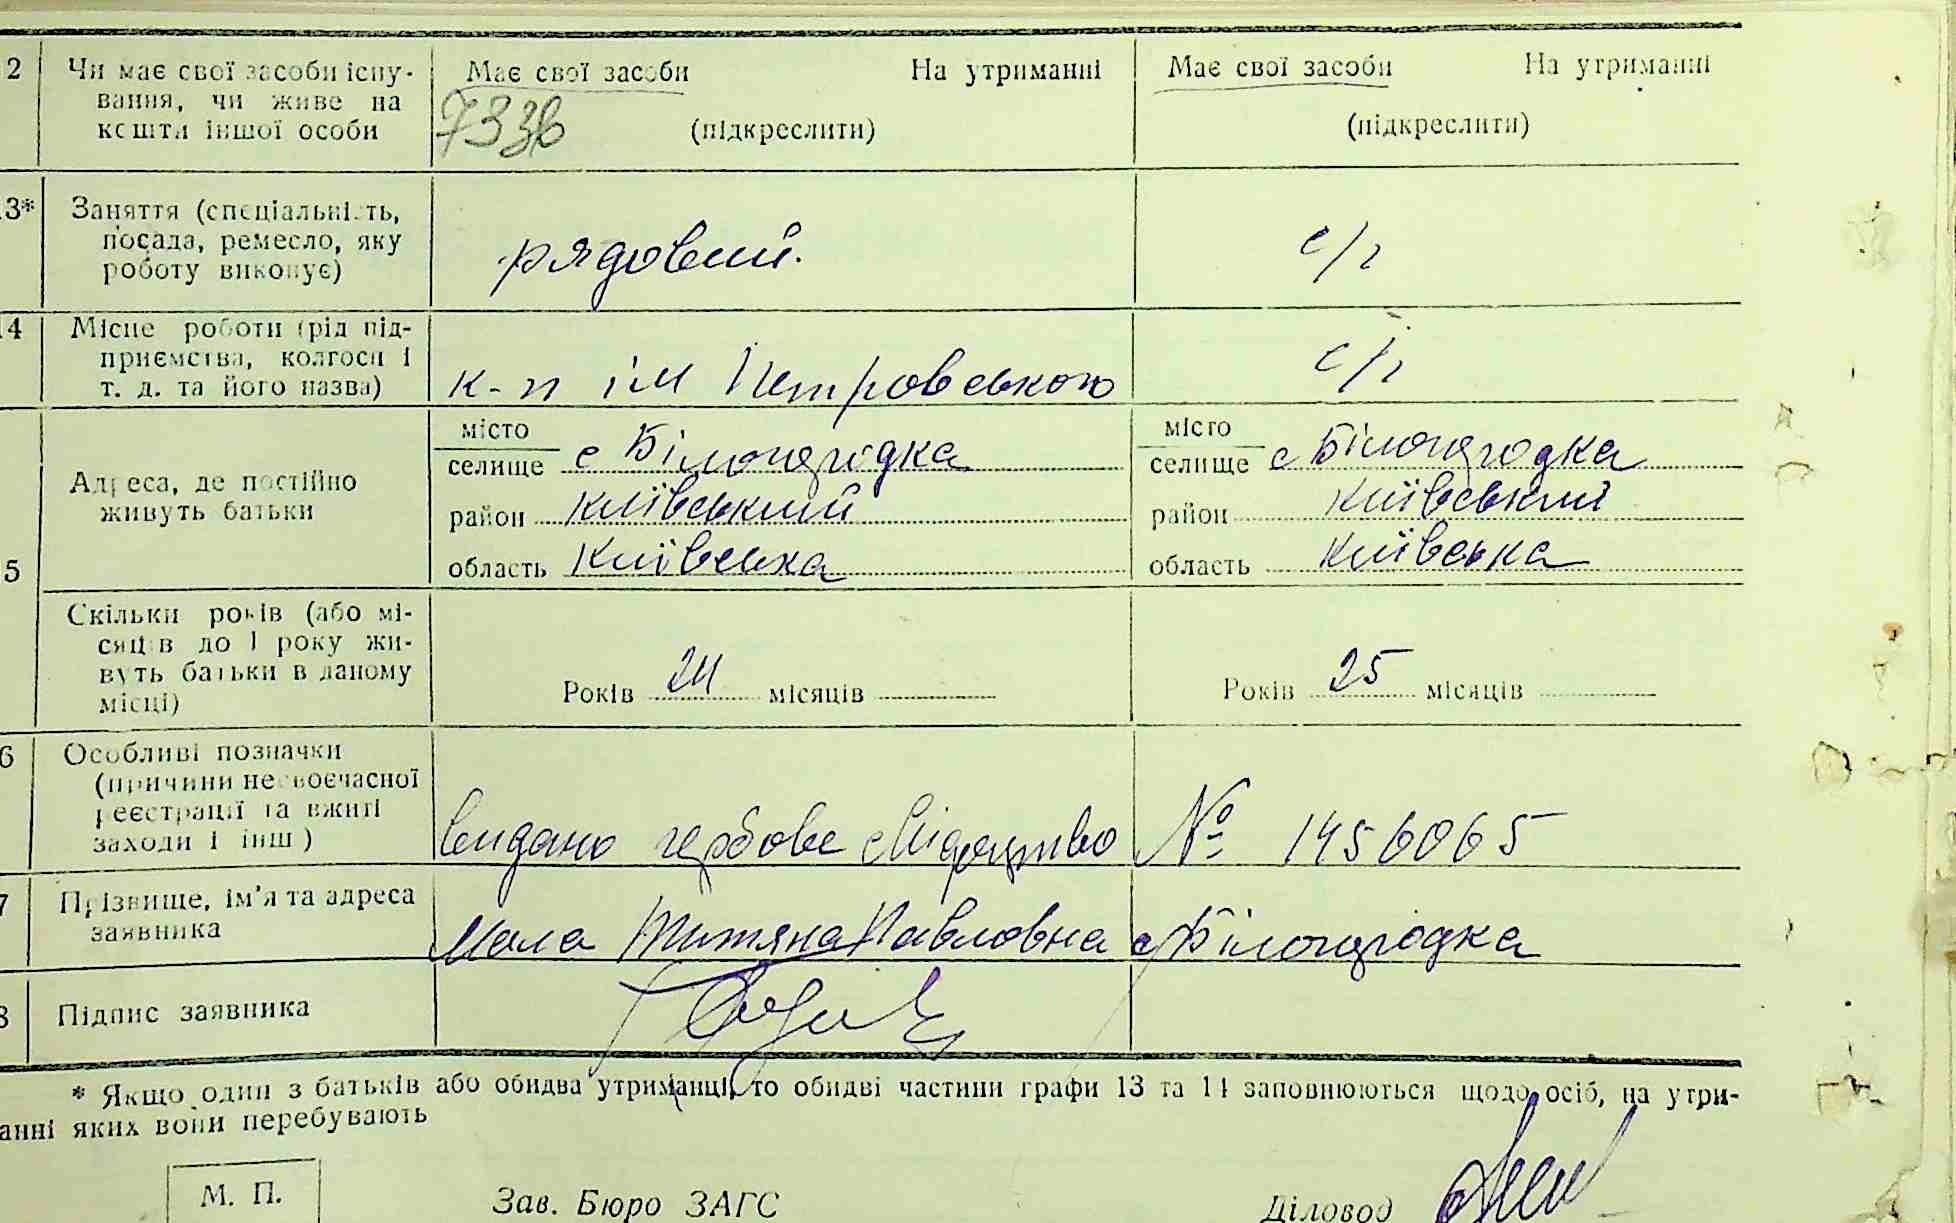 2 Чи має свої засоби існу- Має свої засоби На утриманні Має свої засоби На утриманні
вання, чи живе на
кошти іншої особи (підкреслити) (підкреслити)
733в
13* Заняття (спеціальність,
посада, ремесло, яку рядовий. с/г
роботу виконує)
14 Місце роботи (рід під-
приємства, колгосп і с/г
т. д. та його назва) к-п ім Петровського
5 Адреса, де постійно
живуть батьки
місто місто
селище с Білогородка селище с Білогородка
район Київський район Київський
область Київська область Київська
Скільки років (або мі-
сяців до 1 року жи-
вуть батьки в даному
місці) Років 24 місяців Років 25 місяців
6 Особливі позначки
(причини несвоєчасної
реєстрації та вжиті
заходи і інш) Видано гербове свідоцтво № 1456065
7 Прізвище, ім'я та адреса
заявника Мала Титяна Павловна с Білогородка
8 Підпис заявника
* Якщо один з батьків або обидва утриманці, то обидві частини графи 13 та 14 заповнюються щодо осіб, на утри-
анні яких вони перебувають
М. П. Зав. Бюро ЗАГС Діловод